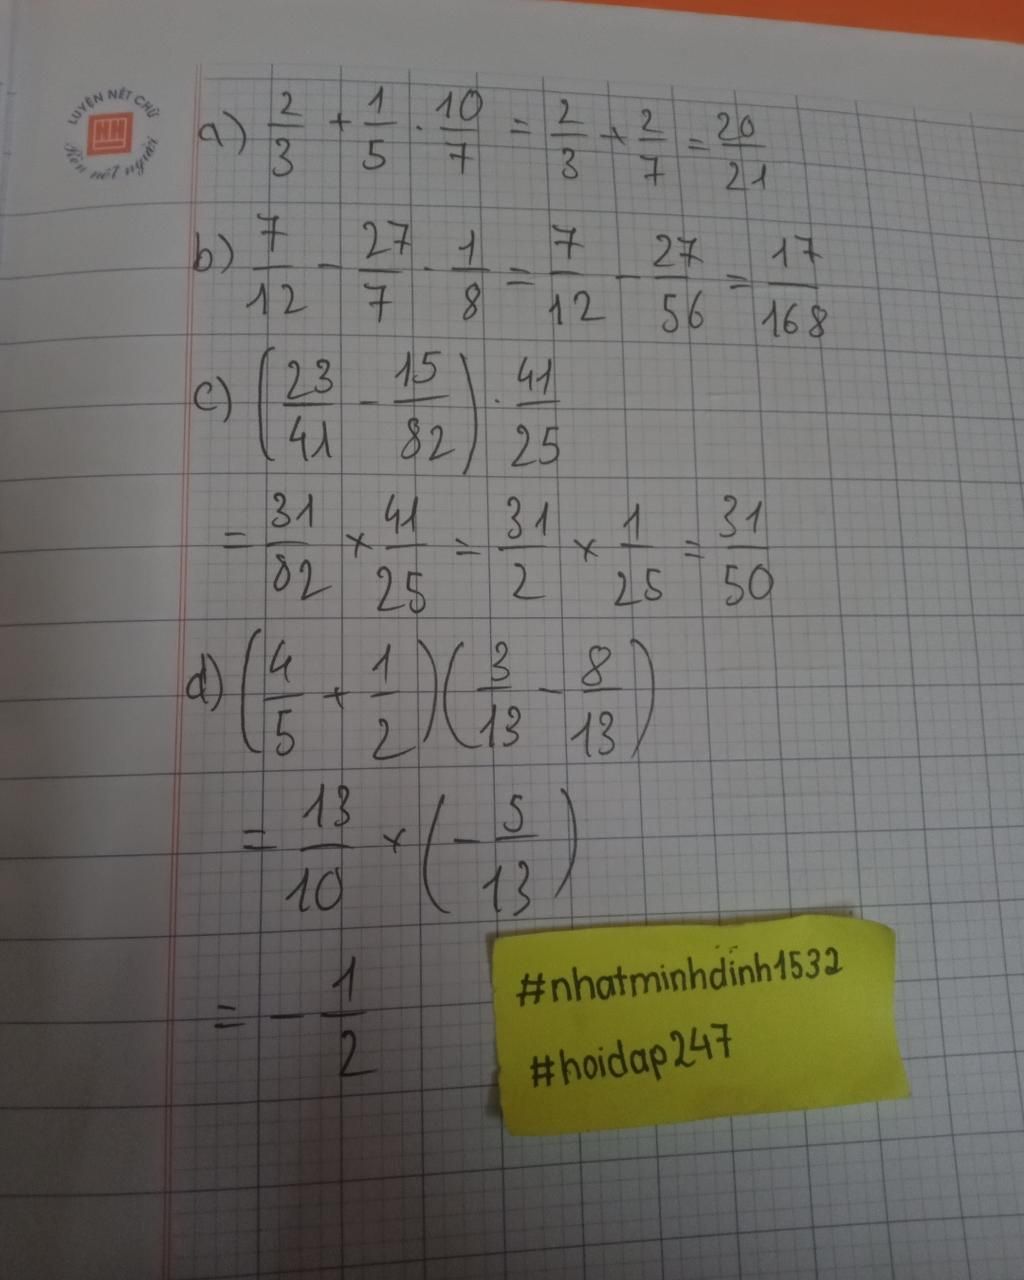 LUYỆN NÉT CHỮ
HH
Rèn nết người
a) 2/3 + 1/5 . 10/7 = 2/3 + 2/7 = 20/21
b) 7/12 - 27/7 . 1/8 = 7/12 - 27/56 = 17/168
c) (23/41 - 15/82) . 41/25
= 31/82 × 41/25 = 31/2 × 1/25 = 31/50
d) (4/5 + 1/2)(3/13 - 8/13)
= 13/10 × (- 5/13)
= - 1/2
#nhatminhdinh1532
#hoidap247